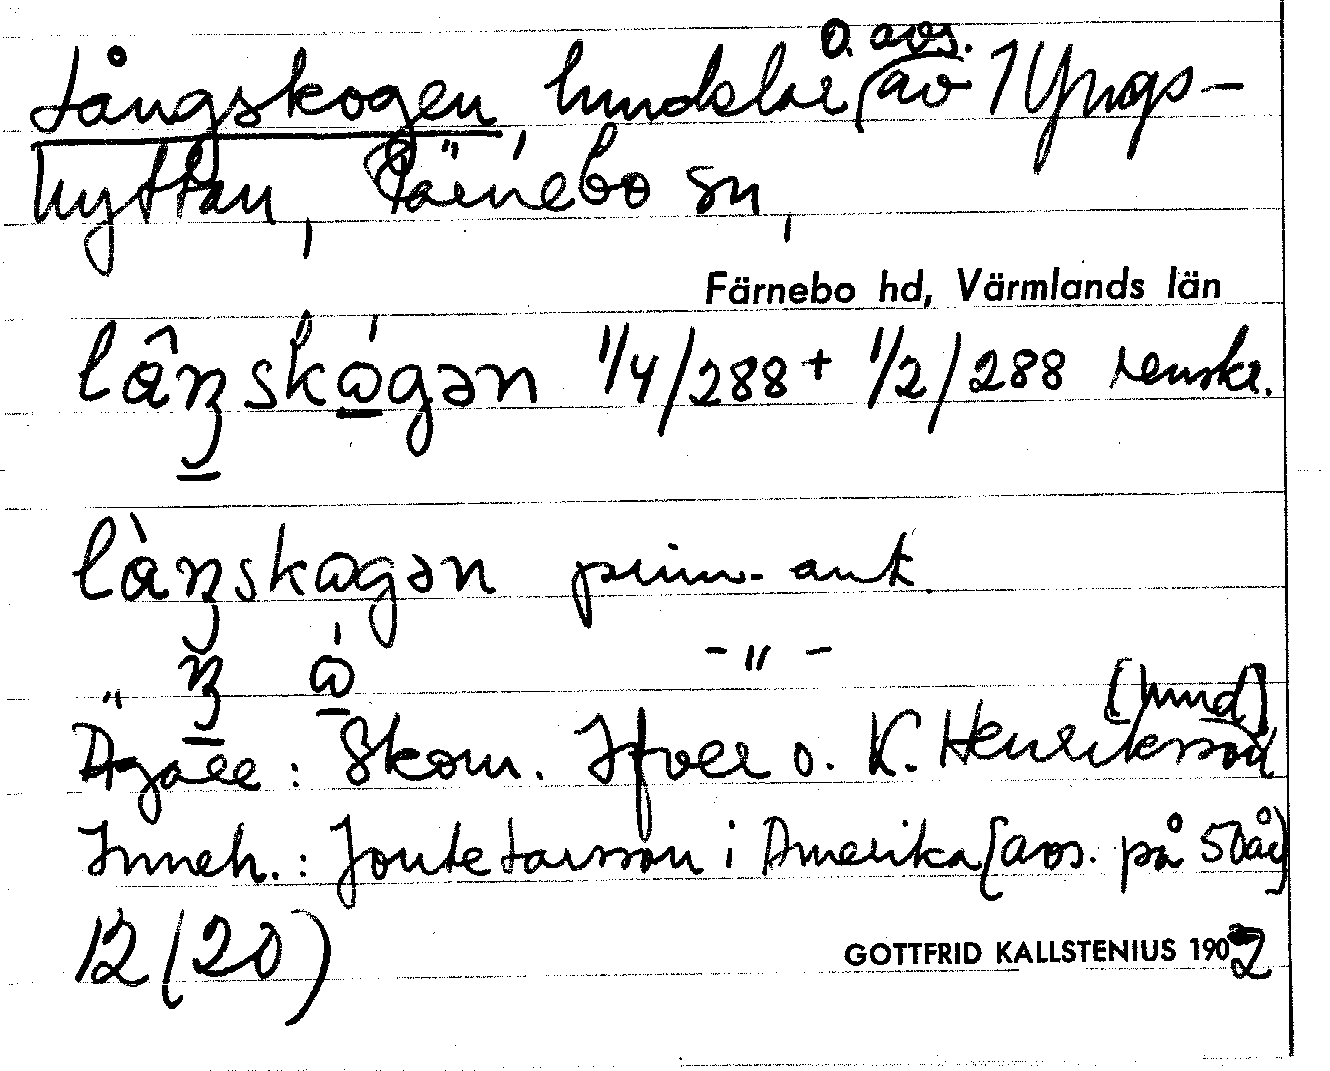 Långskogen, hmdslar o. avs. (av 1 Yngs-
hyttan, Färnebo sn,
Färnebo hd, Värmlands län
lâŋskógən 1/4/288 + 1/2/288 renskr.
làŋskogən prim. ant.
" ŋ ó - " -
Ägare: Skom. Ifver o. K. Henriksson [hmd]
Inneh.: Jonte Larsson i Amerika [avs. på 50 år]
12 (20)
GOTTFRID KALLSTENIUS 1902